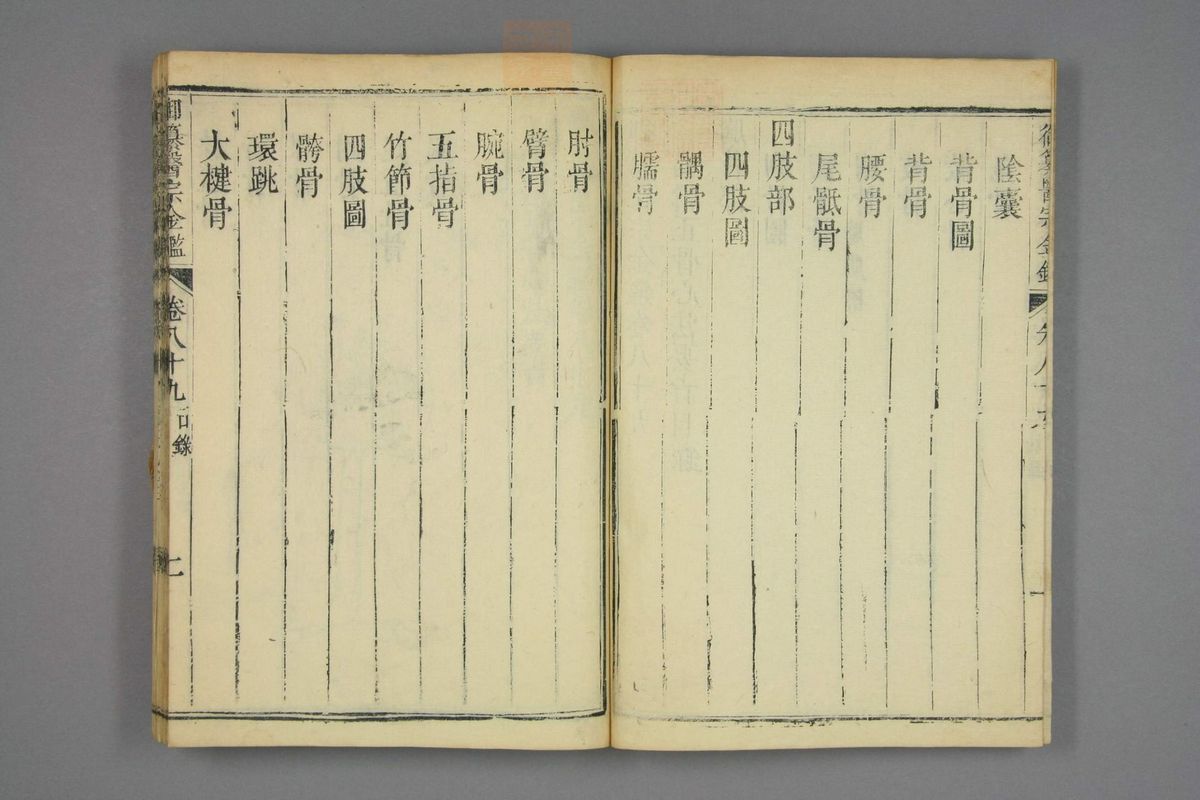 御纂醫宗金鑑 卷八十九
陰囊
背骨圖
背骨
腰骨
尾骶骨
四肢部
四肢圖
髃骨
臑骨
肘骨
臂骨
腕骨
五指骨
竹節骨
四肢圖
胯骨
環跳
大楗骨
御纂醫宗金鑑 卷八十九 目錄 二